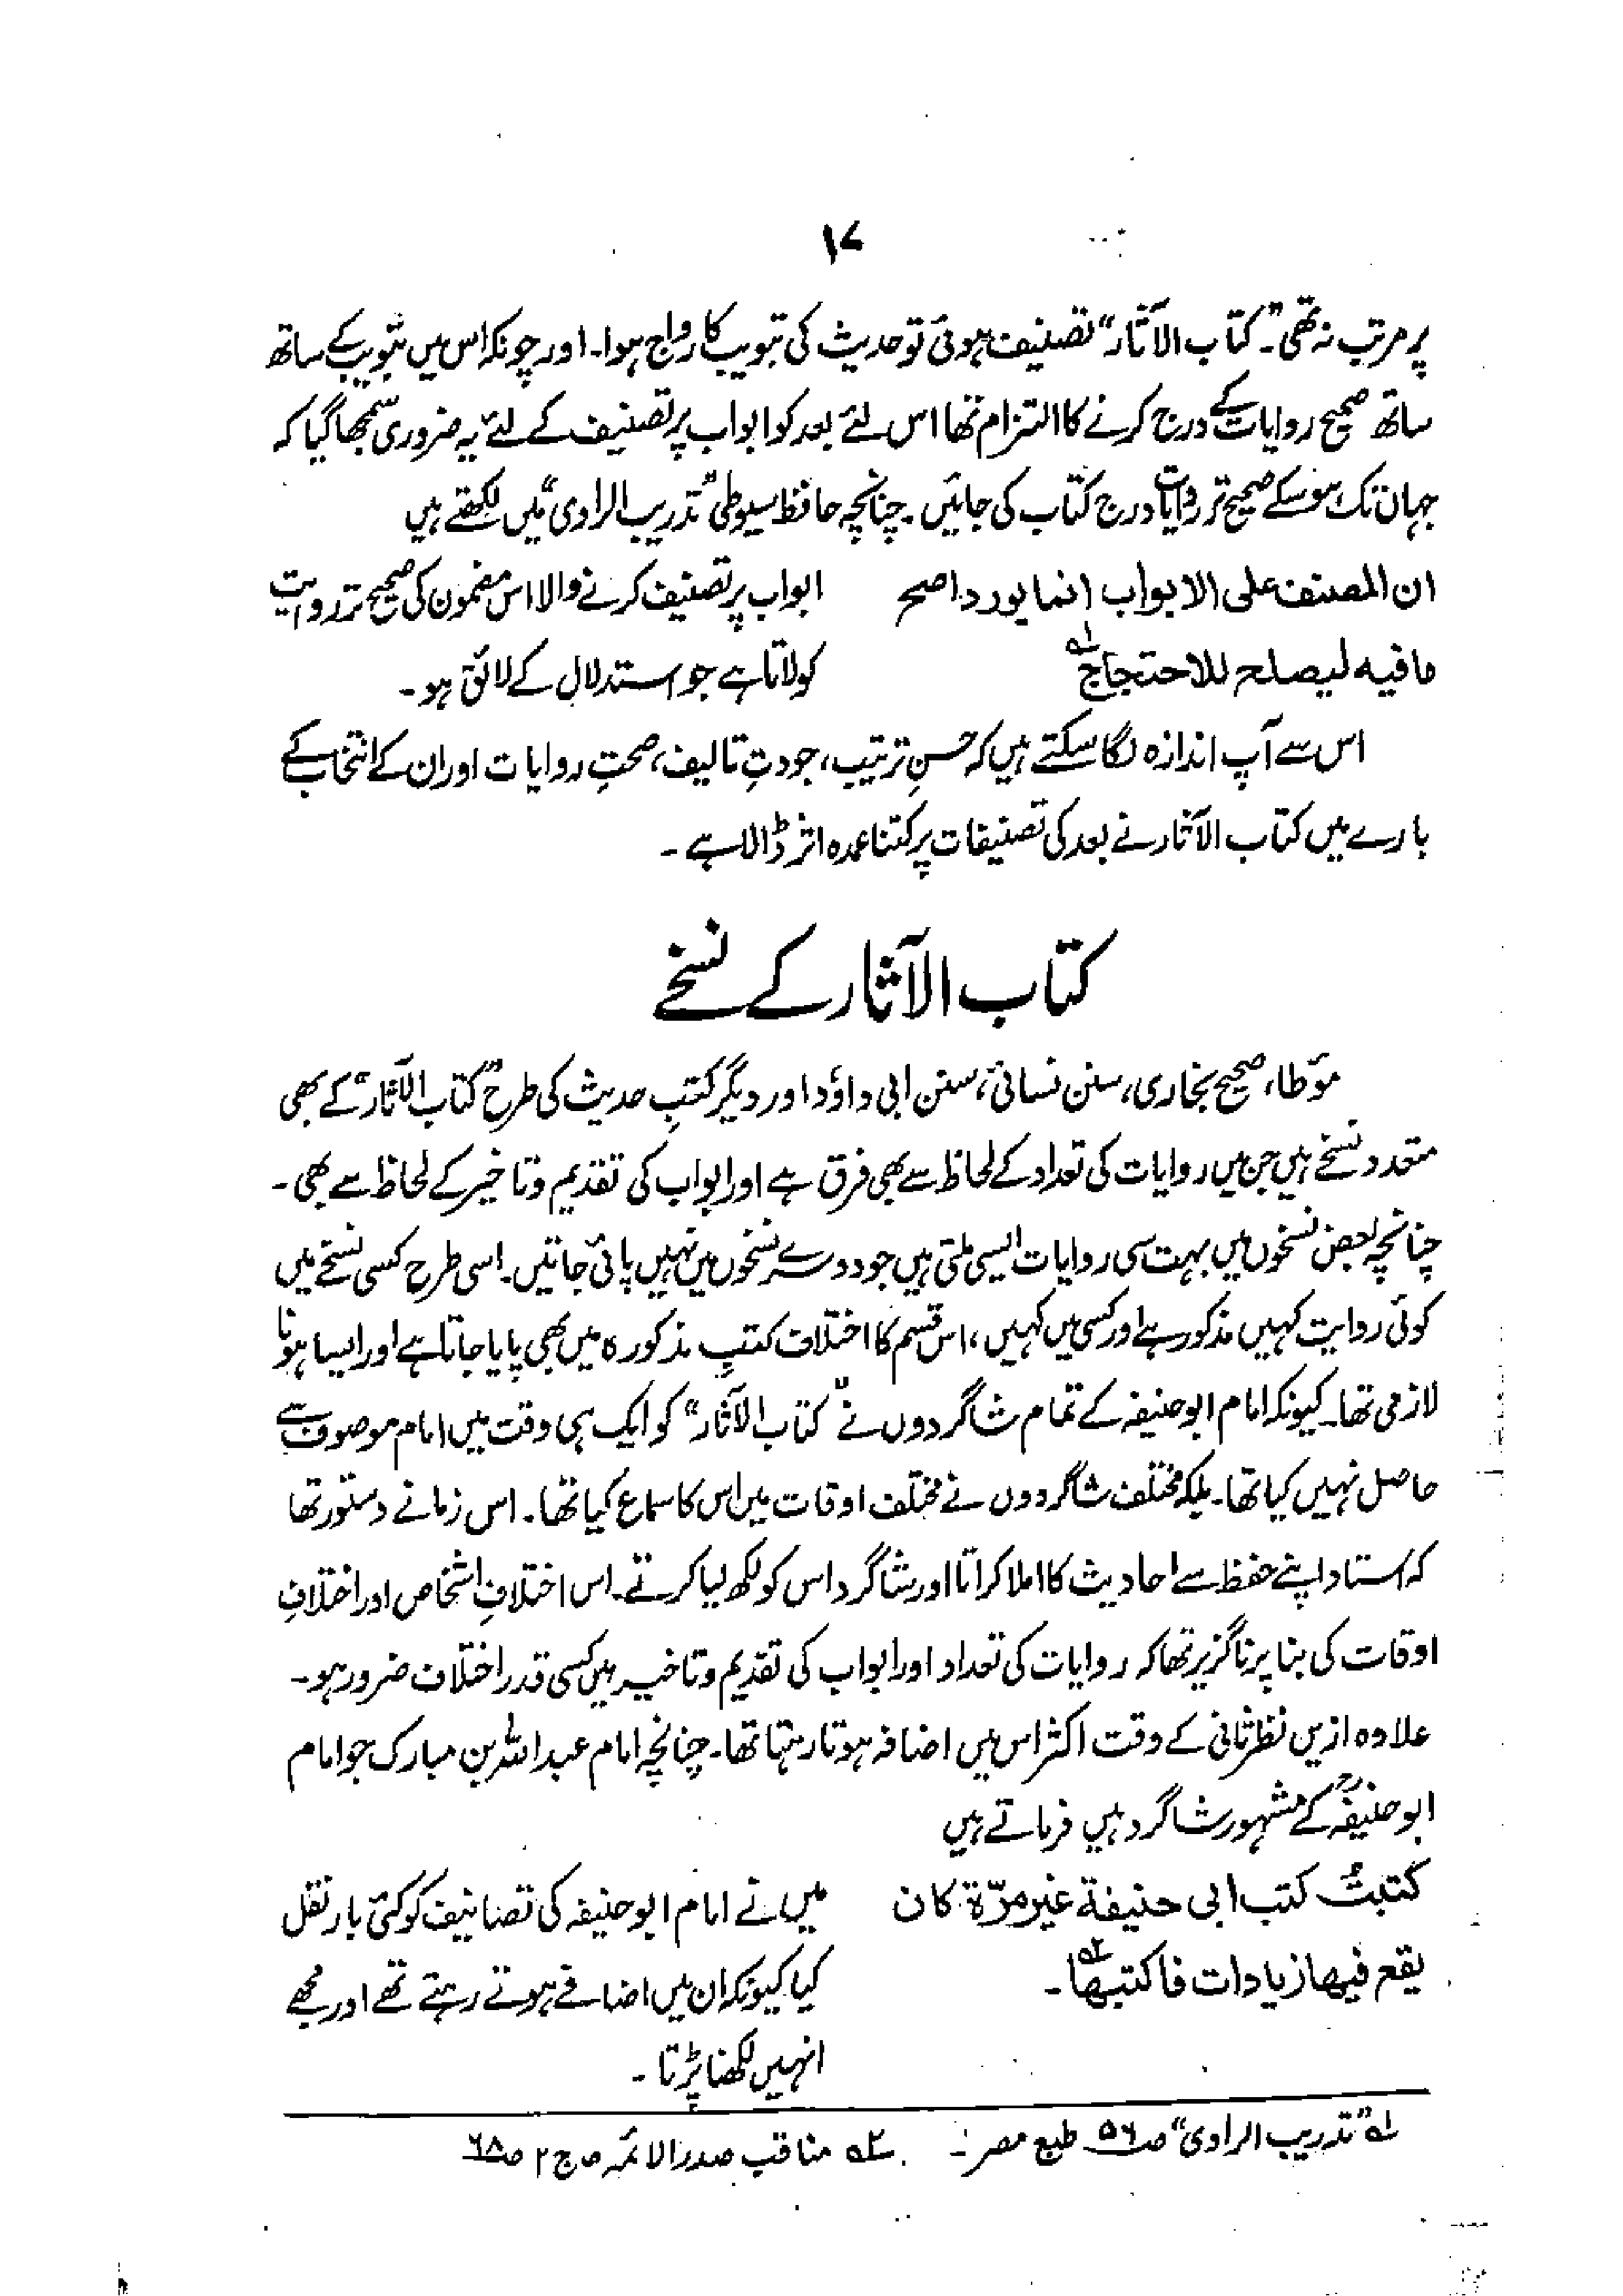 ۱۷
پر مرتب نہ تھی۔ "کتاب الآثار" تصنیف ہوئی تو حدیث کی تبویب کا رواج ہوا۔ اور چونکہ اس میں تبویب کے ساتھ
ساتھ صحیح روایات کے درج کرنے کا التزام تھا اس لئے بعد کو ابواب پر تصنیف کے لئے یہ ضروری سمجھا گیا کہ
جہان تک ہو سکے صحیح تر روایات درج کتاب کی جائیں۔ چنانچہ حافظ سیوطی "تدریب الراوی" میں لکھتے ہیں
ان المصنف علی الابواب انما یورد اصح
ما فیہ لیصلح للاحتجاج ۱؎
ابواب پر تصنیف کرنے والا اس مضمون کی صحیح تر روایت
کو لاتا ہے جو استدلال کے لائق ہو۔
اس سے آپ اندازہ لگا سکتے ہیں کہ حسنِ ترتیب، جودتِ تالیف، صحتِ روایات اور ان کے انتخاب کے
بارے میں کتاب الآثار نے بعد کی تصنیفات پر کتنا عمدہ اثر ڈالا ہے۔
کتاب الآثار کے نسخے
مؤطا، صحیح بخاری، سنن نسائی، سنن ابی داؤد اور دیگر کتبِ حدیث کی طرح "کتاب الآثار" کے بھی
متعدد نسخے ہیں جن میں روایات کی تعداد کے لحاظ سے بھی فرق ہے اور ابواب کی تقدیم و تاخیر کے لحاظ سے بھی۔
چنانچہ بعض نسخوں میں بہت سی روایات ایسی ملتی ہیں جو دوسرے نسخوں میں نہیں پائی جاتیں۔ اسی طرح کسی نسخے میں
کوئی روایت کہیں مذکور ہے اور کسی میں کہیں، اس قسم کا اختلاف کتبِ مذکورہ میں بھی پایا جاتا ہے اور ایسا ہونا
لازمی تھا۔ کیونکہ امام ابو حنیفہ کے تمام شاگردوں نے "کتاب الآثار" کو ایک ہی وقت میں امام موصوف سے
حاصل نہیں کیا تھا۔ بلکہ مختلف شاگردوں نے مختلف اوقات میں اس کا سماع کیا تھا۔ اس زمانے دستور تھا
کہ استاد اپنے حفظ سے احادیث کا املا کراتا اور شاگرد اس کو لکھ لیا کرتے۔ اس اختلافِ اشخاص اور اختلافِ
اوقات کی بنا پر ناگزیر تھا کہ روایات کی تعداد اور ابواب کی تقدیم و تاخیر میں کسی قدر اختلاف ضرور ہو۔
علاوہ ازیں نظرثانی کے وقت اکثر اس میں اضافہ ہوتا رہتا تھا۔ چنانچہ امام عبداللہ بن مبارک جو امام
ابو حنیفہؒ کے مشہور شاگرد ہیں فرماتے ہیں
کتبتُ کتب ابی حنیفة غیر مرّة کان
یقع فیھا زیادات فاکتبھا ۲؎۔
میں نے امام ابو حنیفہ کی تصانیف کو کئی بار نقل
کیا کیونکہ ان میں اضافے ہوتے رہتے تھے اور مجھے
انہیں لکھنا پڑتا۔
۱؎ "تدریب الراوی" ص۵۶ طبع مصر۔ ۲؎ مناقب صدر الائمہ ص ج ۲ ص۶۸